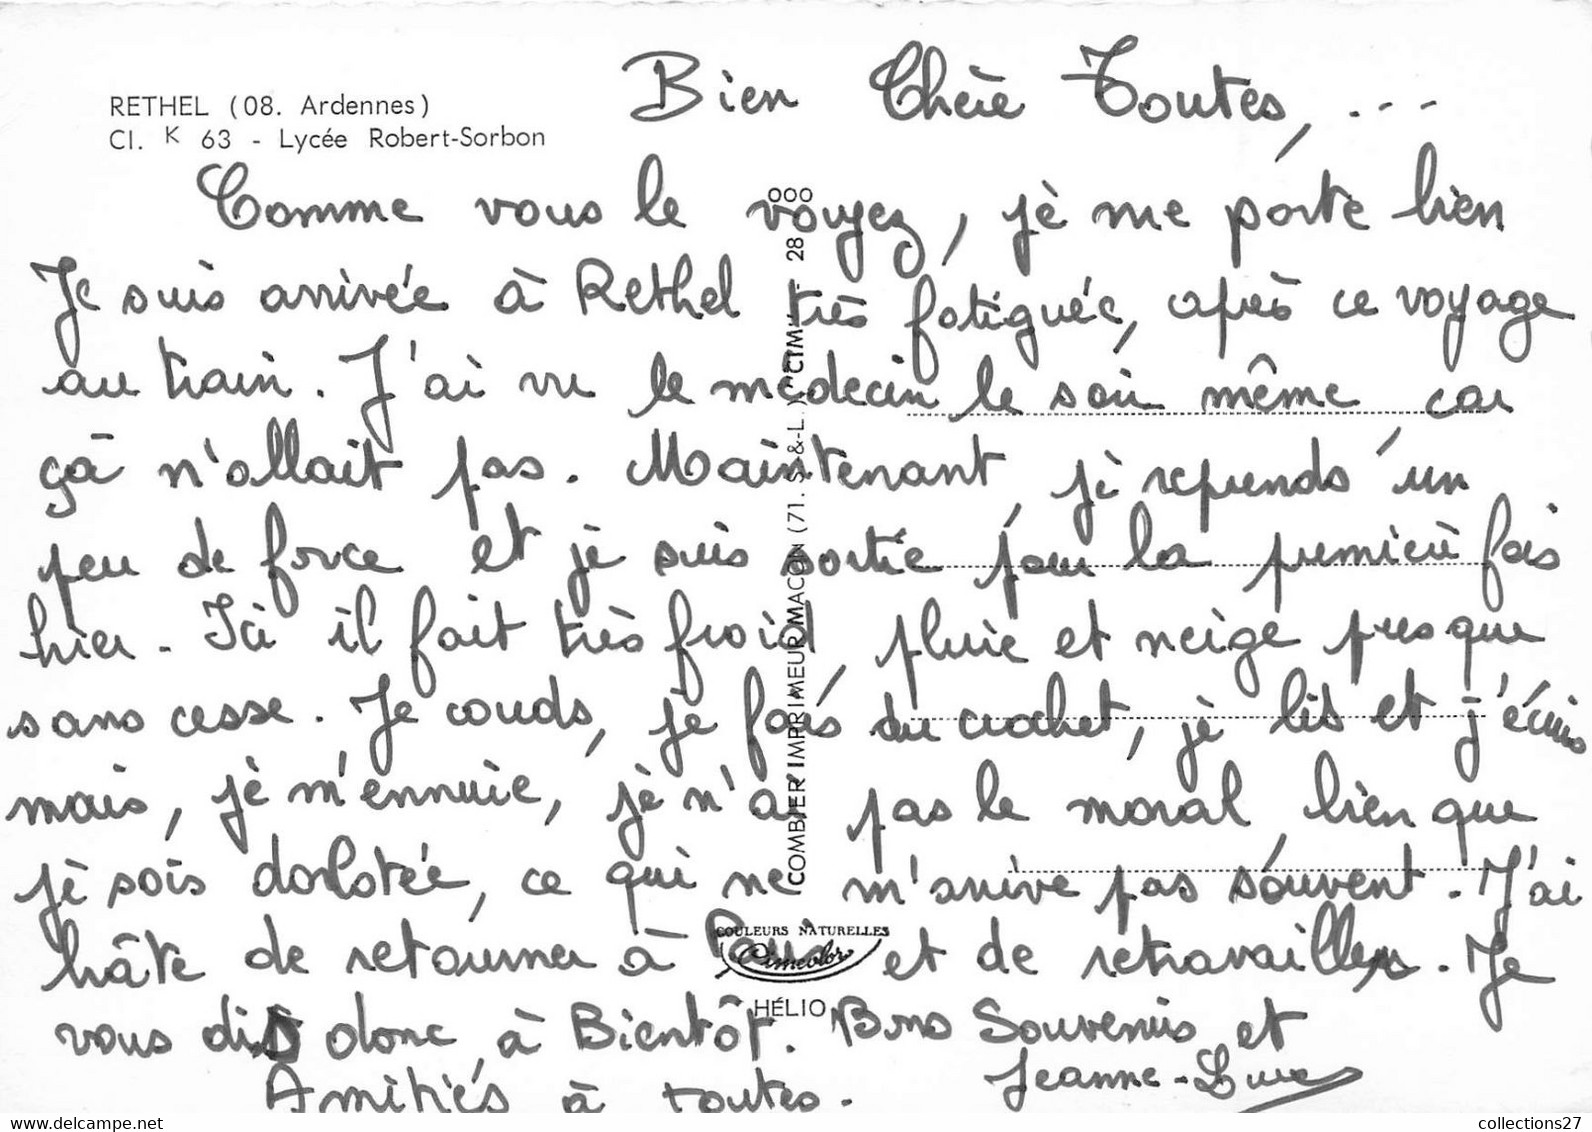 RETHEL (08. Ardennes)
Cl. K 63 - Lycée Robert-Sorbon
Bien Chère Toutes, ...
Comme vous le voyez, je me porte bien
Je suis arrivée à Rethel très fatiguée, après ce voyage
au train. J'ai vu le médecin le soir même, car
ça n'allait pas. Maintenant, je reprends un
peu de force et je suis sortie pour la première fois
hier. Ici il fait très froid, pluie et neige presque
sans cesse. Je couds, je fais du crochet, je lis et j'écris
mais, je m'ennuie, je n'ai pas le moral, bien que
je sois dorlotée, ce qui ne m'arrive pas souvent. J'ai
hâte de retourner à Paris et de retravailler. Je
vous dis donc, à Bientôt. Bons Souvenirs et
Amitiés à toutes.
Jeanne-
COMBIER IMPRIMEUR MACON (71. S.-&-L.) "CIM"
28 000
COULEURS NATURELLES
Cimcolor
HÉLIO
collections27